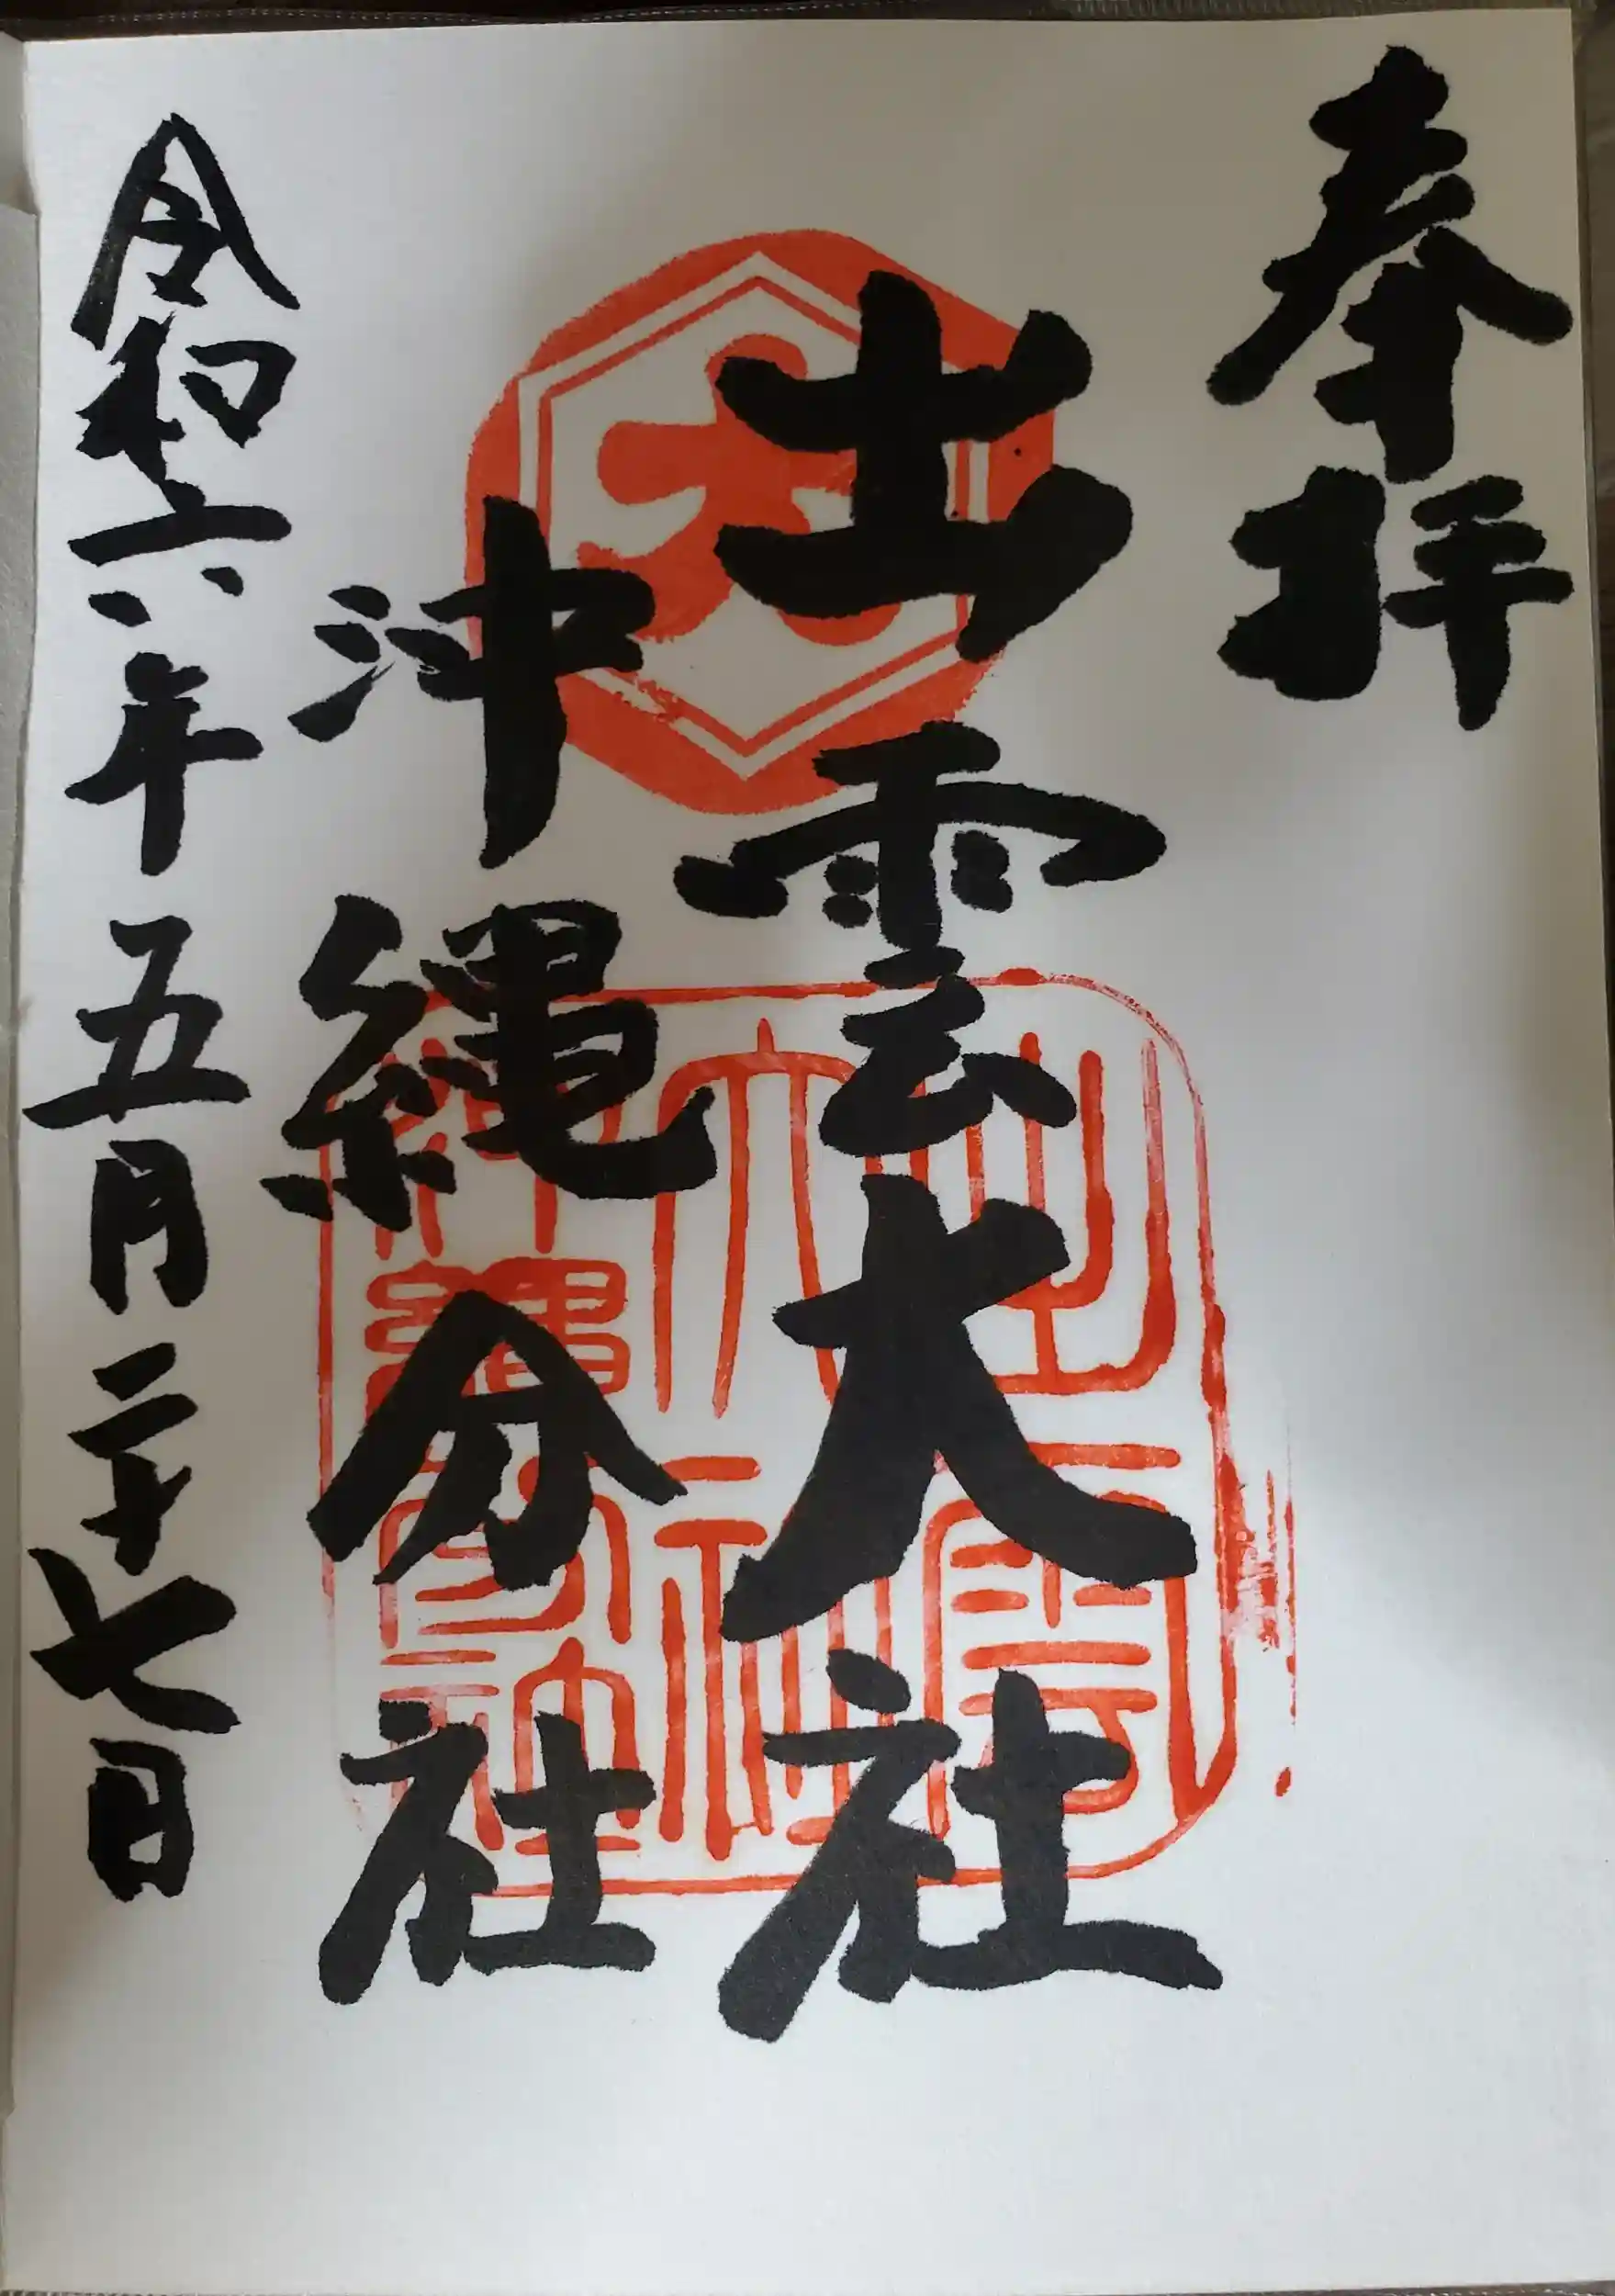 奉拝
出雲大社
沖縄分社
令和六年五月二十七日
大
出雲
大社
沖縄
分社